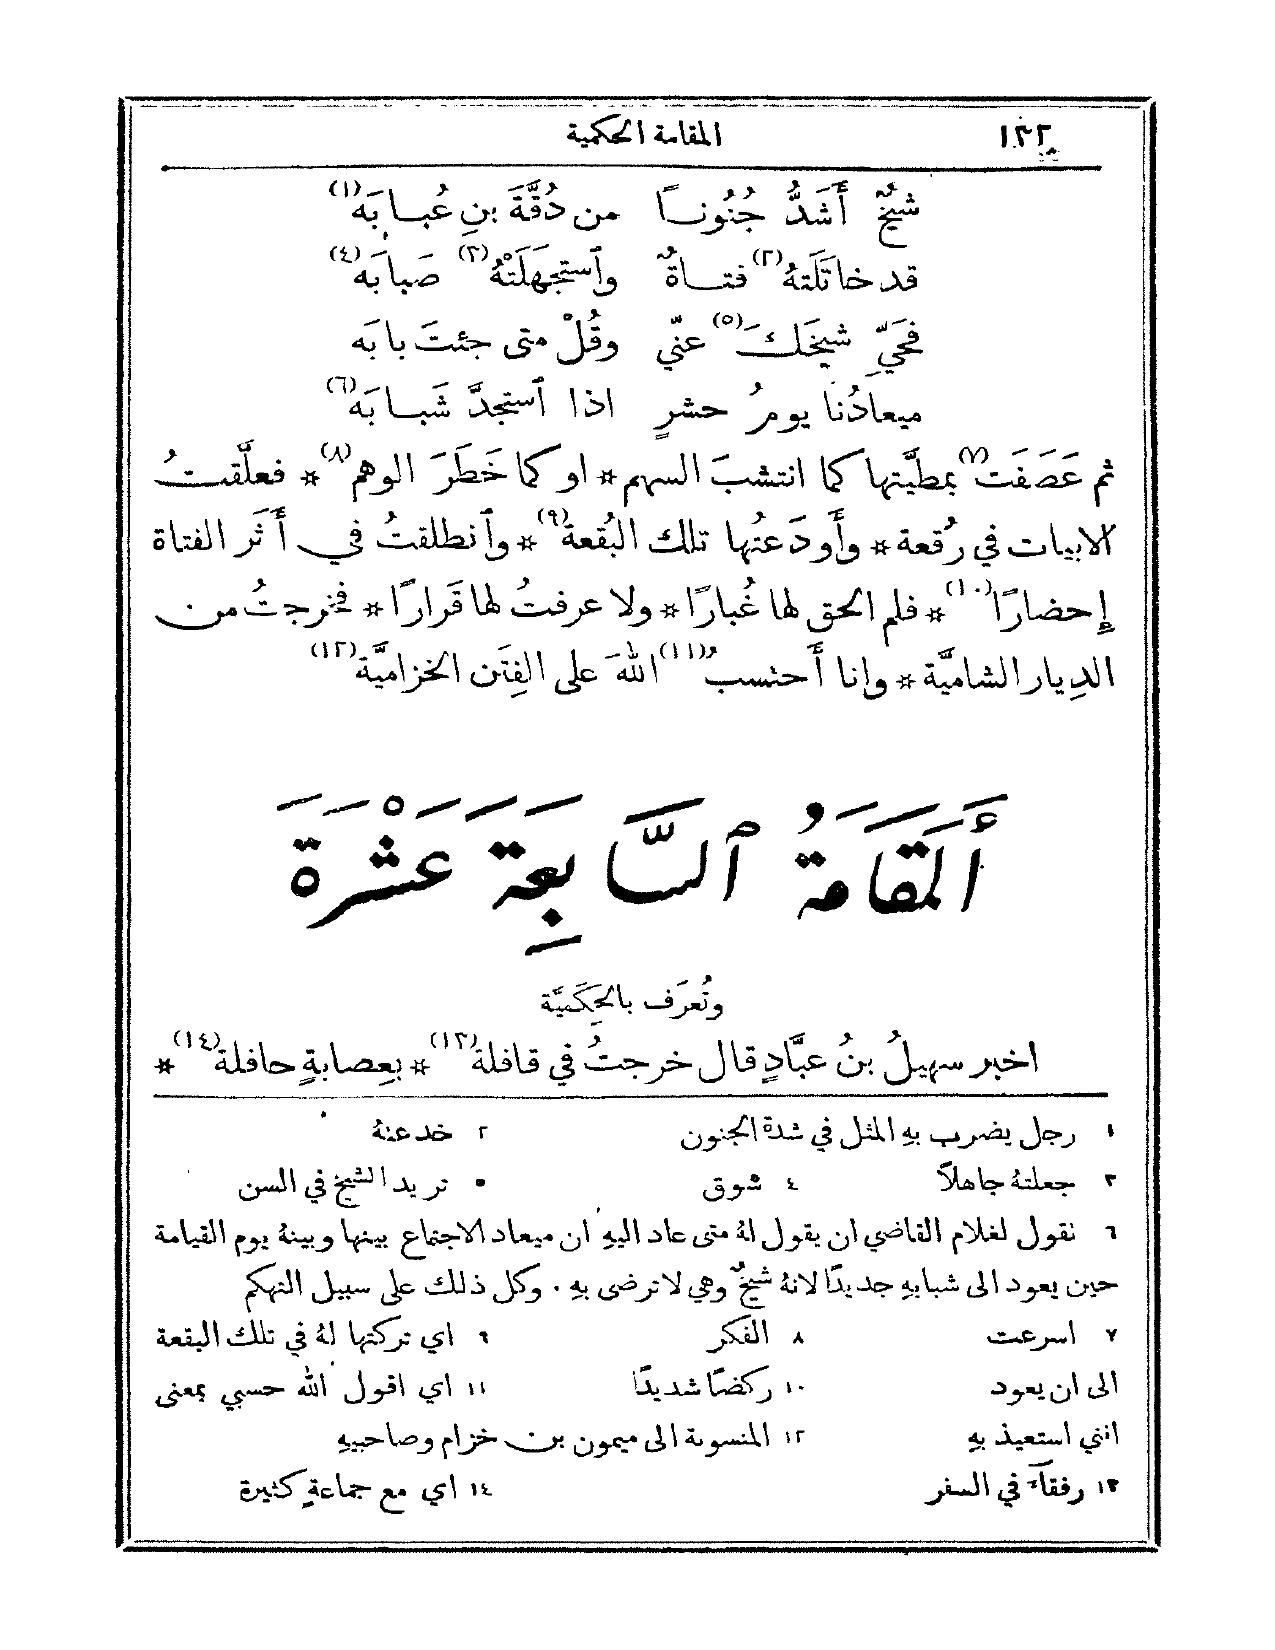 ١٣٢ المقامة الحكمية
شيخٌ أَشدُّ جُنُونـًا من دُقَّةَ بنِ عُبـابَه(١)
قد خاتَلَتهُ(٢) فتـاةٌ وٱستجهَلَتْهُ(٣) صَبابَه(٤)
فحَيِّ شيخَكَ(٥) عنّي وقُلْ متى جئتَ بابَه
ميعادُنا يومُ حشرٍ اذا ٱستجدَّ شَبـابَه(٦)
ثم عَصَفَت(٧) بمطيَّتها كما انتشبَ السهم * او كما خَطَرَ الوهم(٨) * فعلَّقتُ
الابيات في رُقعة * وأَودَعتُها تلك البُقعة(٩) * وٱنطلقتُ في أَثر الفتاة
إِحضارًا(١٠) * فلم الحق لها غُبارًا * ولا عرفتُ لها قَرارًا * فخرجتُ من
الدِيار الشاميَّة * وانا أَحتسبُ(١١) اللهَ على الفِتَن الخزاميَّة(١٢)
أَلمَقَامَةُ ٱلسَّابِعَةَ عَشْرَةَ
وتُعرَف بالحِكَميَّة
اخبر سهيلُ بنُ عبَّادٍ قال خرجتُ في قافلة(١٣) * بعِصابةٍ حافلة(١٤) *
١ رجل يضرب بهِ المثل في شدة الجنون ٢ خدعتهُ
٣ جعلتهُ جاهلاً ٤ شوق ٥ تريد الشيخ في السن
٦ تقول لغلام القاضي ان يقول لهُ متى عاد اليهِ ان ميعاد الاجتماع بينها وبينهُ يوم القيامة
حين يعود الى شبابهِ جديدًا لانهُ شيخٌ وهي لا ترضى بهِ . وكل ذلك على سبيل التهكم
٧ اسرعت ٨ الفكر ٩ اي تركتها لهُ في تلك البقعة
الى ان يعود ١٠ ركضًا شديدًا ١١ اي اقول الله حسبي بمعنى
انني استعيذ بهِ ١٢ المنسوبة الى ميمون بن خزام وصاحبيهِ
١٣ رفقآء في السفر ١٤ اي مع جماعةٍ كثيرة